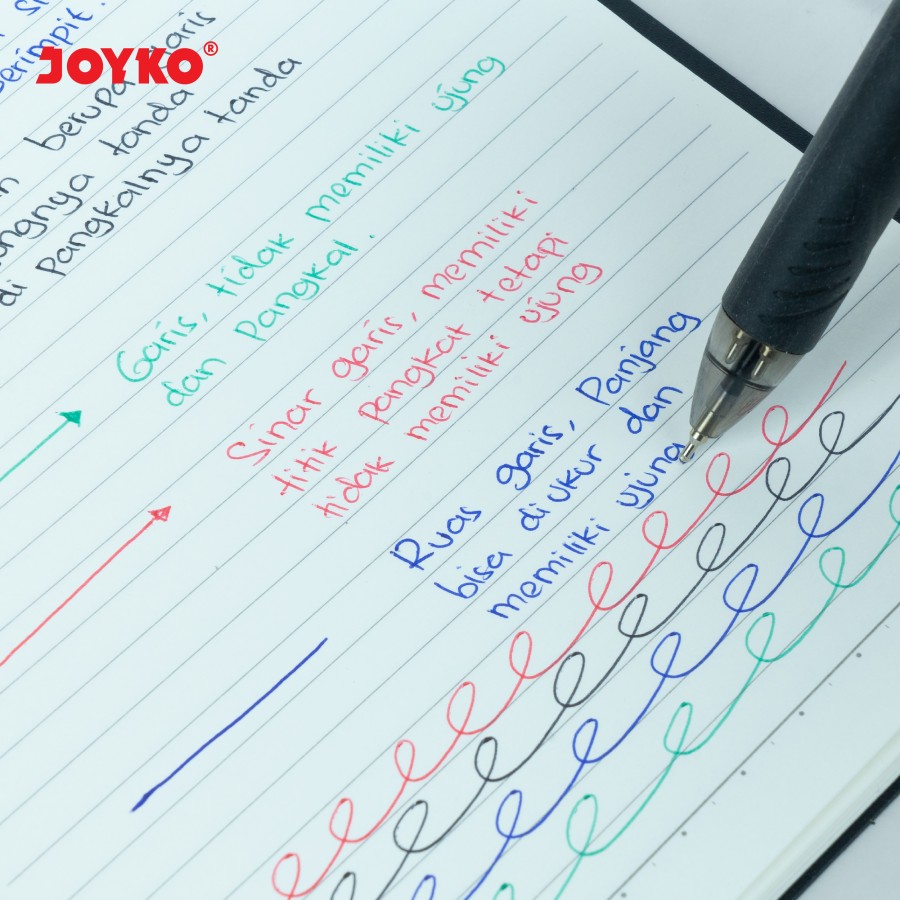 JOYKO®
erimpit.
berupa garis
ungnya tanda
di pangkalnya tanda
Garis, tidak memiliki ujung
dan pangkal.
Sinar garis, memiliki
titik pangkat tetapi
tidak memiliki ujung
Ruas garis, Panjang
bisa diukur dan
memiliki ujung